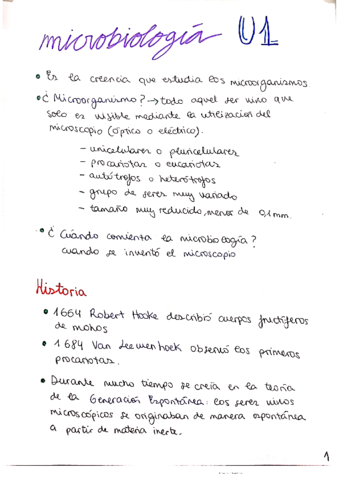 microbiología U1
• Es la creencia que estudia los microorganismos
• ¿Microorganismo? → todo aquel ser vivo que
solo es visible mediante la utilización del
microscopio (óptico o eléctrico).
- unicelulares o pluricelulares
- procariotas o eucariotas
- autótrofos o heterótrofos
- grupo de seres muy variado
- tamaño muy reducido, menor de 0,1mm.
• ¿Cuándo comienza la microbiología?
cuando se inventó el microscopio
Historia
• 1664 Robert Hooke describió cuerpos fructíferos
de mohos
• 1684 Van Leewenhoek observó los primeros
procariotas.
• Durante mucho tiempo se creía en la teoría
de la Generación Espontánea: los seres vivos
microscópicos se originaban de manera espontánea
a partir de materia inerte.
1